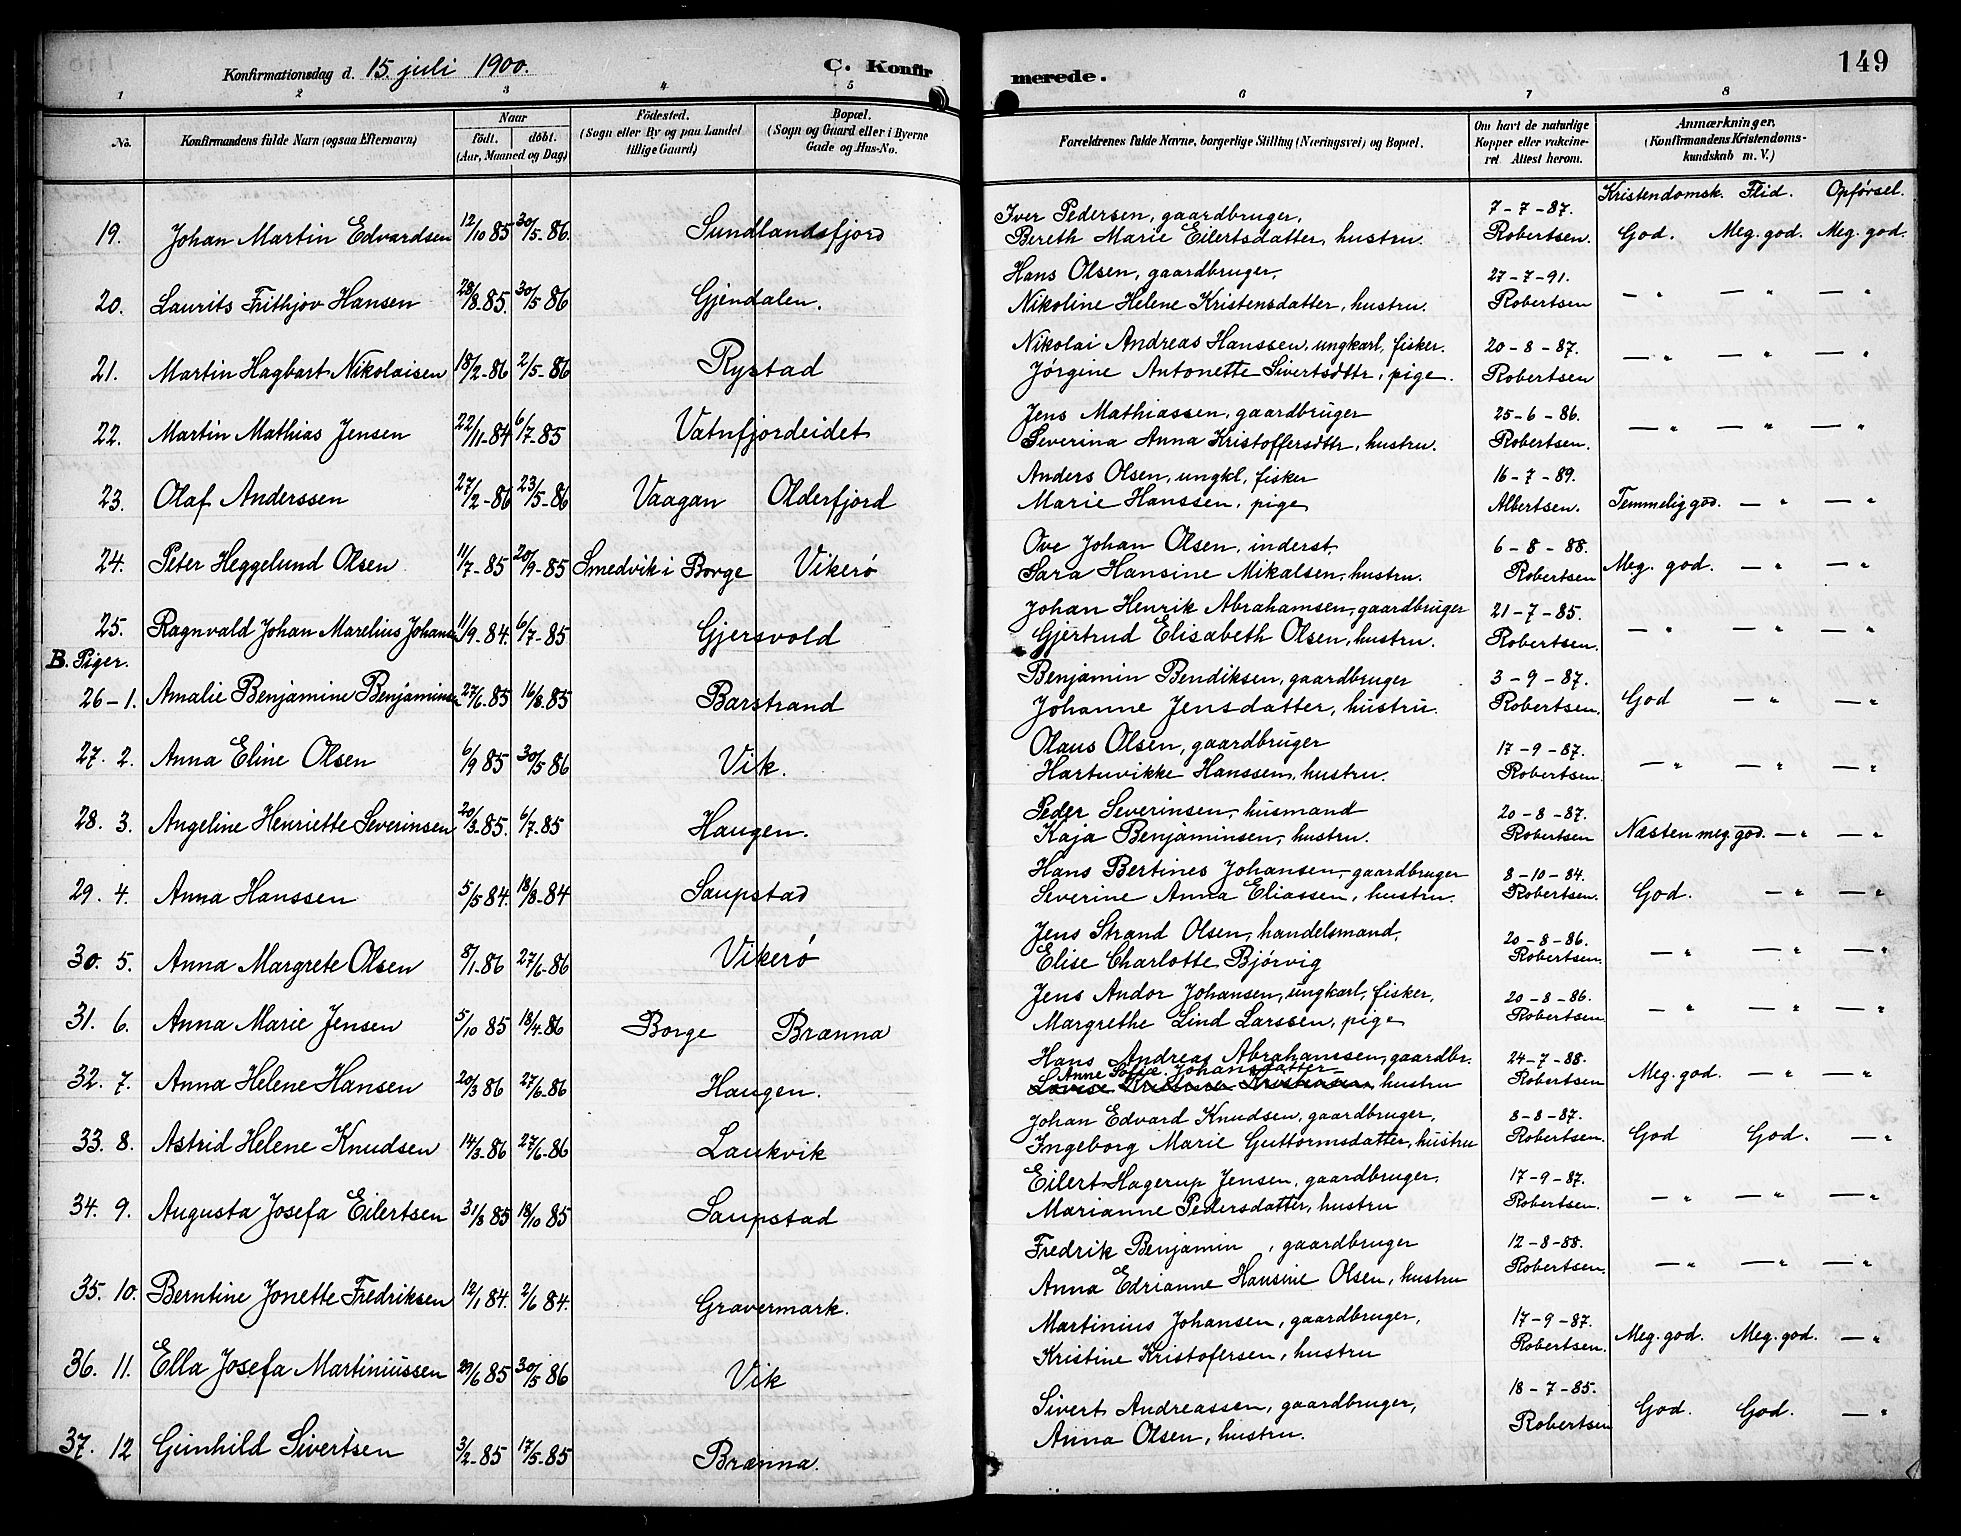 Konfirmationsdag d. 15. juli 1900. C. Konfir
merede. 149
1 2 3 4 5 6 7 8
No. Konfirmandens fulde Navn (ogsaa Efternavn) Naar født. døbt. (Aar, Maaned og Dag) Fødested. (Sogn eller By og paa Landet tillige Gaard) Bopæl. (Sogn og Gaard eller i Byerne Gade og Hus-No. Forældrenes fulde Navne, borgerlige Stilling (Næringsvei) og Bopæl. Om havt de naturlige Kopper eller vakcineret Attest herom. Anmærkninger. (Konfirmandens Kristendomskundskab m. V.)
Kristendomsk. Flid. Opførsel.
19. Johan Martin Edvardsen 12/10 85 30/5-86. Sundlandsfjord Iver Pedersen, gaardbruger, 7-7-87.
Bereth Marie Eilertsdatter, hustru. Robertsen. God. Meg. god. Meg. god.
20. Laurits Frithjov Hansen 28/8-85. 30/5 86 Gjendalen. Hans Olsen, gaardbruger, 27-7-91.
Nikoline Helene Kristensdatter, hustru. Robertsen — " — " — "
21. Martin Hagbart Nikolaisen 18/2-86 2/5-86 Rystad Nikolai Andreas Hanssen, ungkarl, fisker. 20-8-87.
Jørgine Antonette Sivertsdttr, pige. Robertsen — " — " — "
22. Martin Mathias Jensen 22/11-84 6/7-85 Vatnfjordeidet Jens Mathiassen, gaardbruger 25-6-86.
Severina Anna Kristoffersdttr, hustru. Robertsen. — " — " — "
23. Olaf Anderssen 27/2-86 23/5-86 Vaagan Olderfjord Anders Olsen, ungkl, fisker 16-7-89.
Marie Hanssen, pige Albertsen. Temmelig god. — " — "
24. Peter Heggelund Olsen 11/7-85 20/9-85 Smedvik i Borge Vikerø Ove Johan Olsen, inderst 6-8-88.
Sara Hansine Mikalsen, hustru. Robertsen Meg. god. — " — "
25. Ragnvald Johan Marelius Johans 11/9-84. 6/7-85 Gjersvold Johan Henrik Abrahamsen, gaardbruger 21-7-85.
Gjertrud Elisabeth Olsen, hustru. Robertsen. — " — " — "
B. Piger.
26-1. Amalie Benjamine Benjaminsen 27/6-85 16/8-85 Barstrand Benjamin Bendiksen, gaardbruger 3-9-87.
Johanne Jensdatter, hustru. Robertsen. God — " — "
27. 2. Anna Eline Olsen 6/9 85 30/5 86 Vik. Olaus Olsen, gaardbruger 17-9-87.
Hartuvikke Hanssen, hustru. Robertsen. — " — " — "
28. 3. Angeline Henriette Severinsen 20/3-85. 6/7-85 Haugen. Peder Severinsen, husmand 20-8-87.
Kaja Benjaminsen, hustru. Robertsen Næsten meg. god. — " — "
29. 4. Anna Hanssen 5/5 84. 18/8-84 Saupstad Hans Bertines Johansen, gaardbruger 8-10-84.
Severine Anna Eliassen, hustru. Robertsen. God. — " — "
30. 5. Anna Margrete Olsen 8/1-86 27/6-86 Vikerø Jens Strand Olsen, handelsmand, 20-8-86.
Elise Charlotte Bjørvig Robertsen. — " — " — "
31. 6. Anna Marie Jensen 5/10 85 18/4.86 Borge Brænna Jens Andor Johansen, ungkarl, fisker, 20-8-86.
Margrethe Lind Larssen, pige Robertsen. — " — " — "
32. 7. Anna Helene Hansen 20/3 86 27/6-86 Haugen. Hans Andreas Abrahamssen, gaardbr. 24-7-88.
Anne Sofie Johansdatter
hustru Robertsen Meg. god. — " — "
33. 8. Astrid Helene Knudsen 14/3-86 27/6-86 Laukvik Johan Edvard Knudsen, gaardbruger, 8-8-87.
Ingeborg Marie Guttormsdatter, hustru Robertsen. God God. — "
34. 9. Augusta Josefa Eilertsen 31/8 85 18/10 85 Saupstad Eilert Hagerup Jensen, gaardbruger. 17-9-87.
Marianne Pedersdatter, hustru Robertsen. — " — " — "
35. 10. Berntine Jonette Fredriksen 12/1 84. 2/6 84. Gravermark. Fredrik Benjamin , gaardbruger 12-8-88.
Anna Edrianne Hansine Olsen, hustru Robertsen. — " — " — "
36. 11. Ella Josefa Martiniussen 29/6 85 30/5 86 Vik Martinius Johansen, gaardbruger, 17-9-87.
Kristine Kristofersen, hustru Robertsen. Meg. god. Meg. god. — "
37. 12 Gunhild Sivertsen 3/2-85 17/5-85 Brænna. Sivert Andreassen, gaardbruger, 18-7-85.
Anna Olsen, hustru. Robertsen God. God. — "